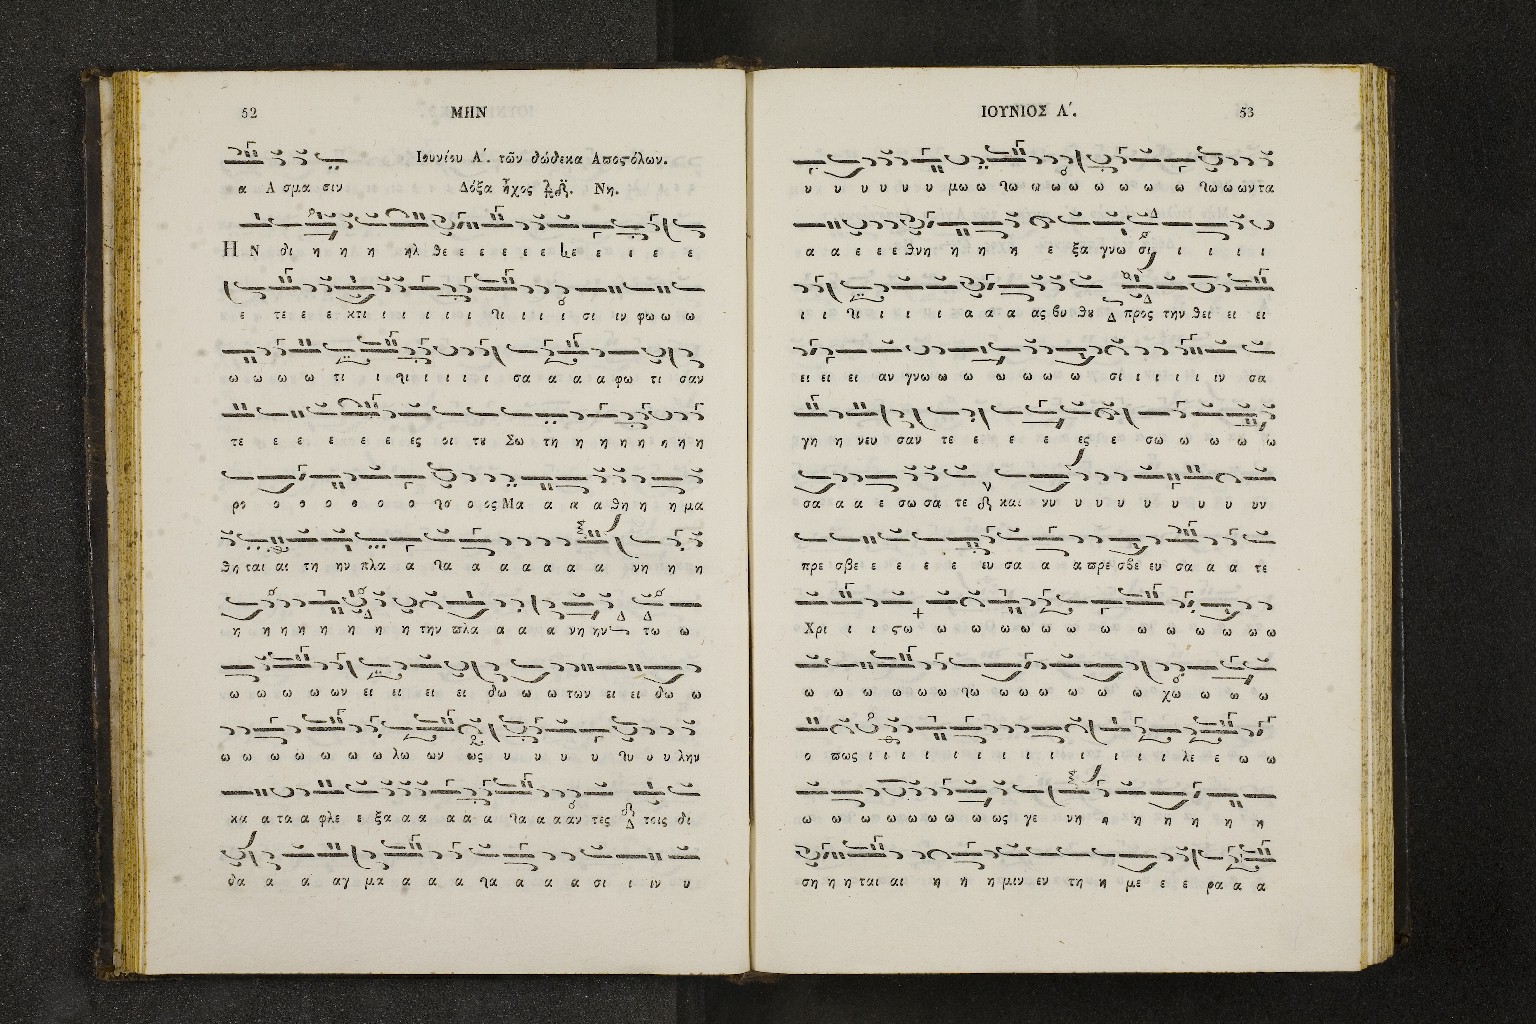 52
ΜΗΝ
Ιουνίου Α΄. τῶν δώδεκα Αποςόλων.
α Α σμα σιν
Δόξα ἦχος Νη.
Η Ν δι η η η ηλ θε ε ε ε ε ε ε ι ε ε
ε τε ε ε κτι ι ι ι ι ι ι ι ι σι ιν φω ω ω
ω ω ω ω τι ι ι ι ι ι σα α α α φω τι σαν
τε ε ε ε ε ε ες οι του Σω τη η η η η η η η
ρο ο ο ο ο ο ο ο ος Μα α α α θη η η μα
θη ται αι τη ην πλα α α α α α α α νη η η
η η η η η η η η την πλα α α α νη ην τω ω
ω ω ω ω ων ει ει ει ει δω ω ω των ει ει δω ω
ω ω ω ω ω ω ω λω ων ως υ υ υ υ υ υ λην
κα α τα α φλε ε ξα α α α α α α α α αν τες τοις δι
δα α α αγ μα α α α α α α α σι ι ιν υ
ΙΟΥΝΙΟΣ Α΄.
53
υ υ υ υ υ υ μω ω ω ω ω ω ω ω ω ω ω ων τα
α α ε ε ε θνη η η η η ε ξα γνω σι ι ι ι ι
ι ι ι ι ι ι α α α ας βυ θου προς την θει ει ει
ει ει ει αν γνω ω ω ω ω ω ω σι ι ι ι ι ιν σα
γη η νευ σαν τε ε ε ε ε ες ε σω ω ω ω ω
σα α α ε σω σα τε και νυ υ υ υ υ υ υ υ υν
πρε σβε ε ε ε ε ευ σα α α πρε σβε ευ σα α α τε
Χρι ι ι ςω ω ω ω ω ω ω ω ω ω ω ω ω
ω ω ω ω ω ω ω ω ω ω ω ω ω χω ω ω ω
ο πως ι ι ι ι ι ι ι ι ι ι ι ι ι λε ε ω ω
ω ω ω ω ω ω ω ω ως γε νη η η η η η η
ση η η ται αι η η η μιν εν τη η με ε ε ρα α α